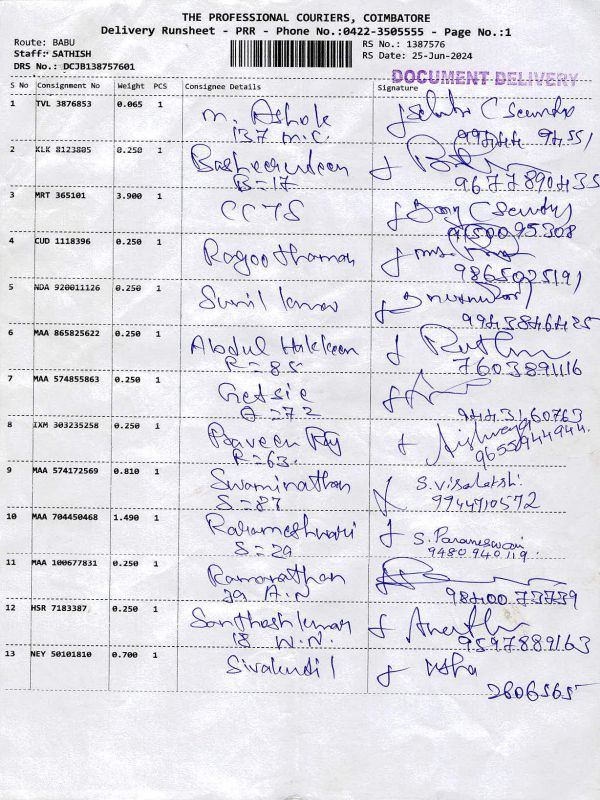 THE PROFESSIONAL COURIERS, COIMBATORE
Delivery Runsheet - PRR - Phone No.:0422-3505555 - Page No.:1
Route: BABU
RS No.: 1387576
Staff: SATHISH
RS Date: 25-Jun-2024
DRS No.: DCJB138757601
DOCUMENT DELIVERY
S No Consignment No Weight PCS Consignee Details Signature
1 TVL 3876853 0.065 1 M. Ashok
137 M.C.
2 KLK 8123805 0.250 1
B=17 9677890435
3 MRT 365101 3.900 1 CCTS
9500095308
4 CUD 1118396 0.250 1
9865025191
5 NDA 920011126 0.250 1 Sunil Kumar
9943846425
6 MAA 865825622 0.250 1 Abdul Hakkeem
R=85 7603891116
7 MAA 574855863 0.250 1 Getsie
A=72 9443160763
8 IXM 303235258 0.250 1 Praveen Raj
R=63 9655944944
9 MAA 574172569 0.810 1 Swaminathan S. Visalatshi
S=87 9944710572
10 MAA 704450468 1.490 1 S. Parameswari
S=29 9480940119
11 MAA 100677831 0.250 1 Ramanathan
39 A.N 9840073739
12 HSR 7183387 0.250 1 Santhosh Kumar
18 W.N. 9597889163
13 NEY 50101810 0.700 1 Usha
2606565